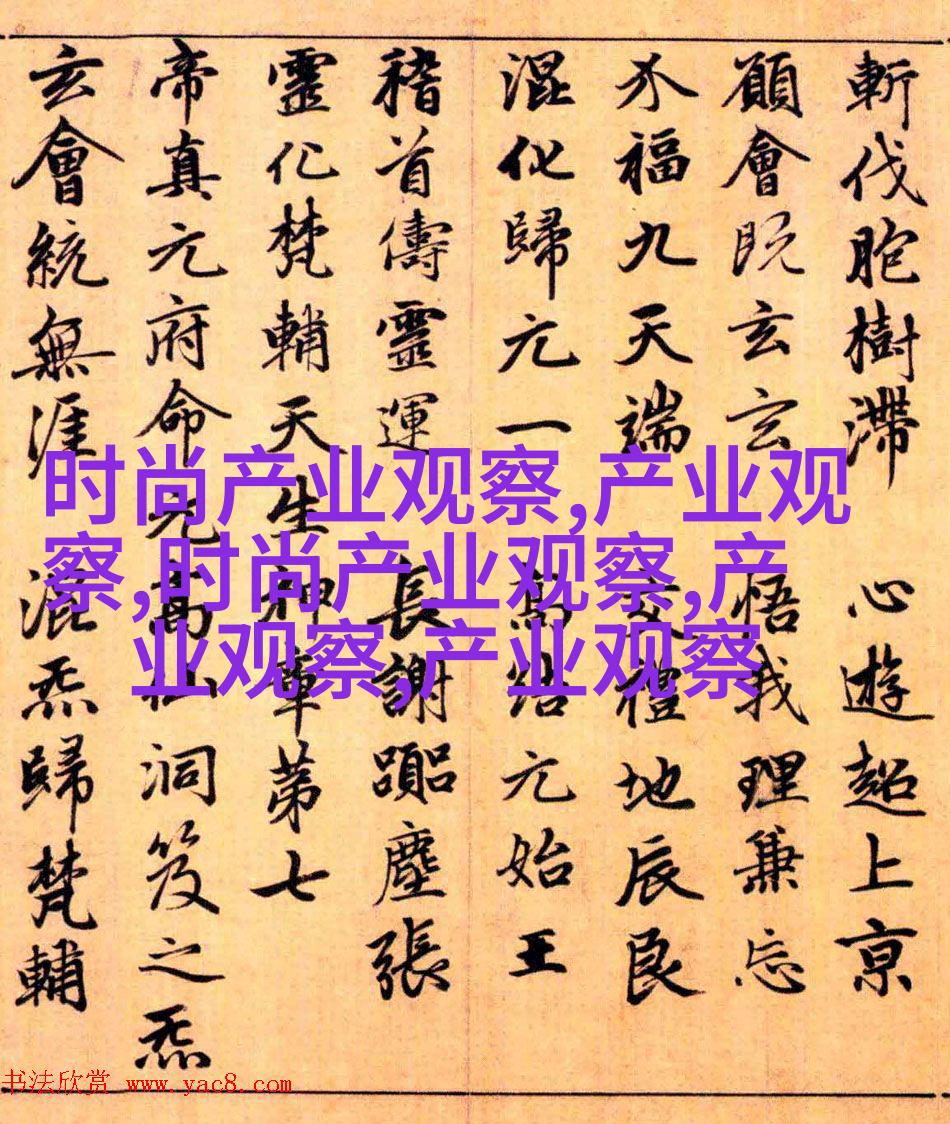 斬伐胞樹滯 心遊超上京
願會既玄玄 悟我理兼忘
介福九天端 交禮地辰良
混化歸元一 結元始王
稽首儔靈運 長謝塵張
靈化梵輔天生神章第七
帝真元府命元高仙洞笈之炁
玄會統無涯 混炁歸梵輔
时尚产业观察,产业观
察,时尚产业观察,产
业观察,产业观察
书法欣赏 www.yac8.com